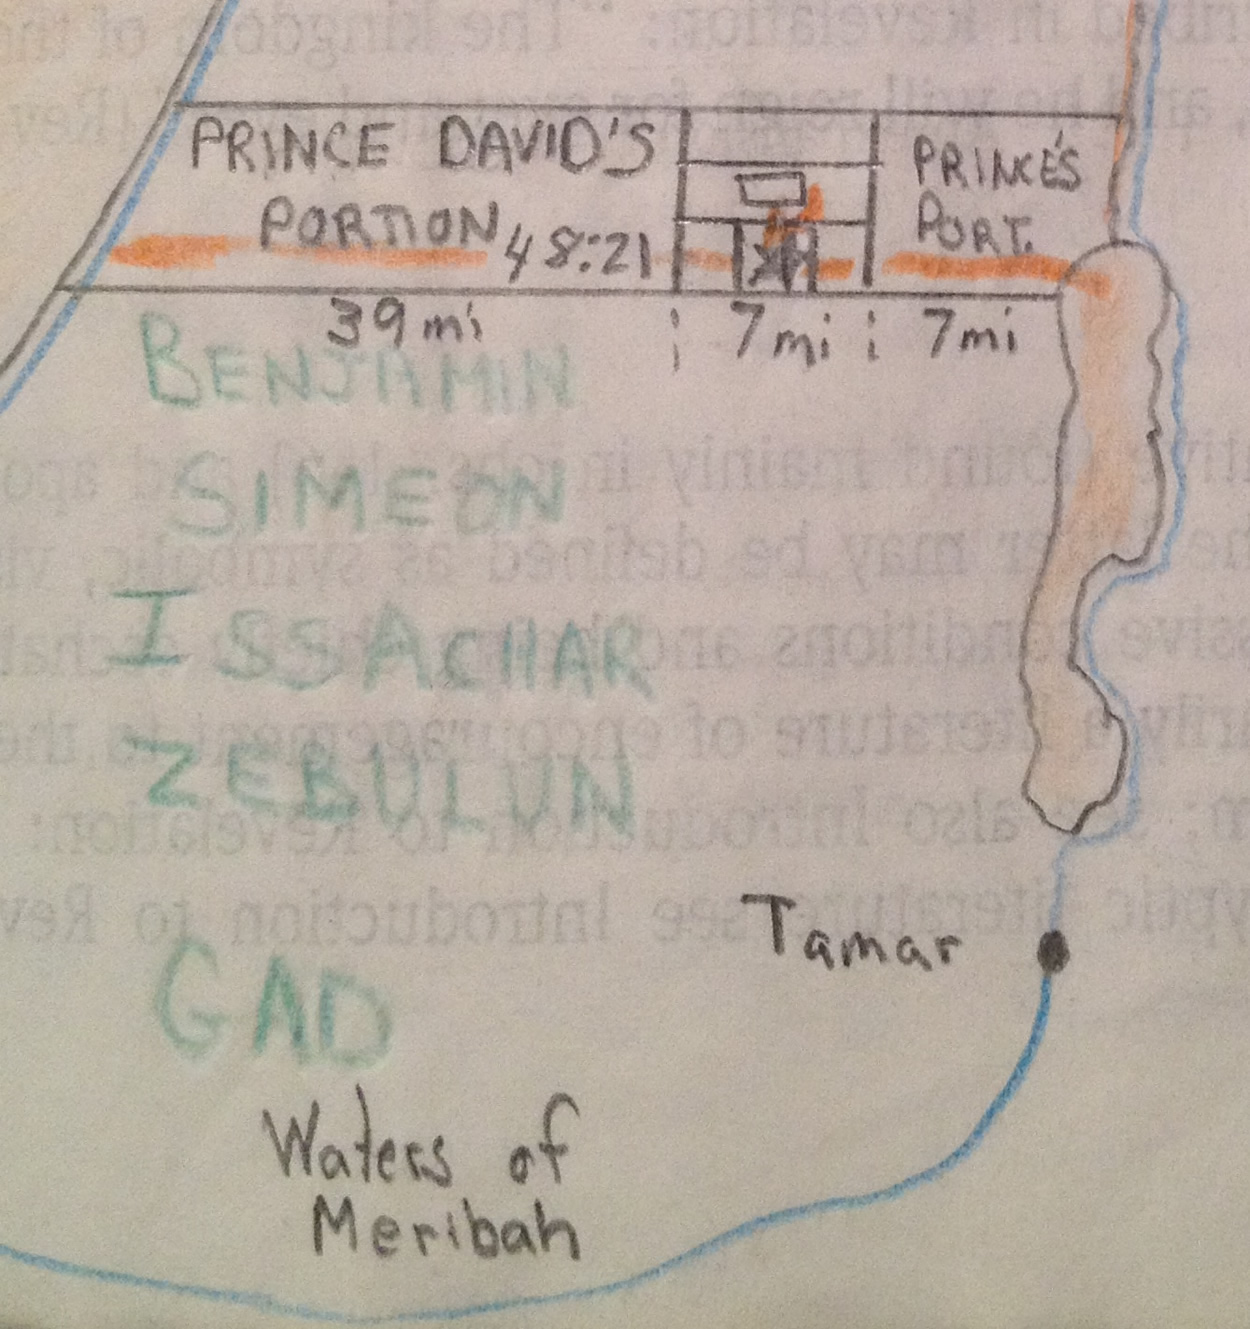 PRINCE DAVID'S
PORTION 48:21
PRINCE'S
PORT.
39 mi
7mi
7mi
BENJAMIN
SIMEON
ISSACHAR
ZEBULUN
Tamar
GAD
Waters of
Meribah